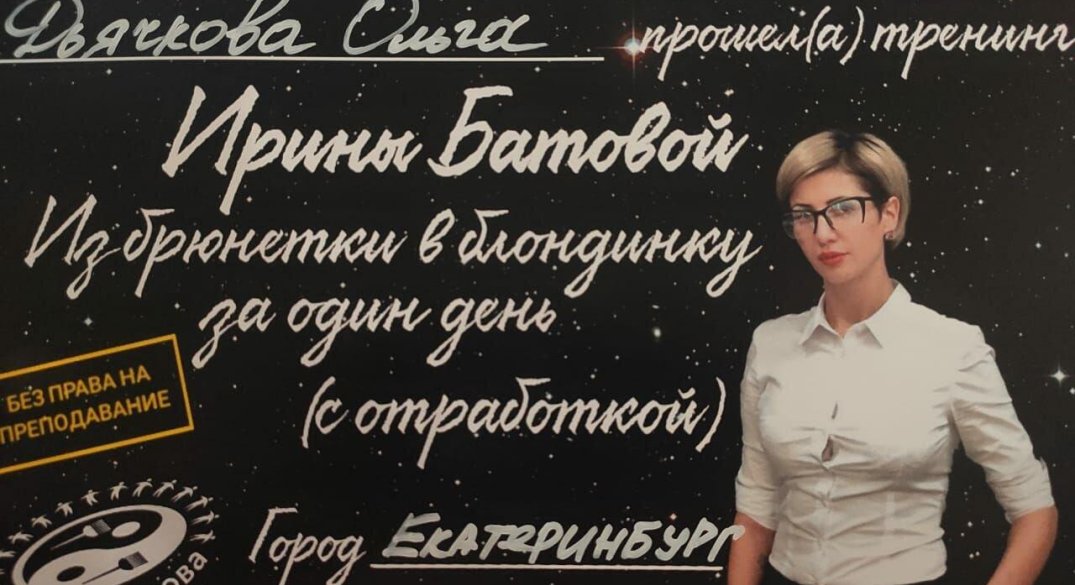 Дьячкова Ольга прошел(а) тренинг
Ирины Батовой
Из брюнетки в блондинку
за один день
(с отработкой)
БЕЗ ПРАВА НА
ПРЕПОДАВАНИЕ
Город ЕКАТЕРИНБУРГ